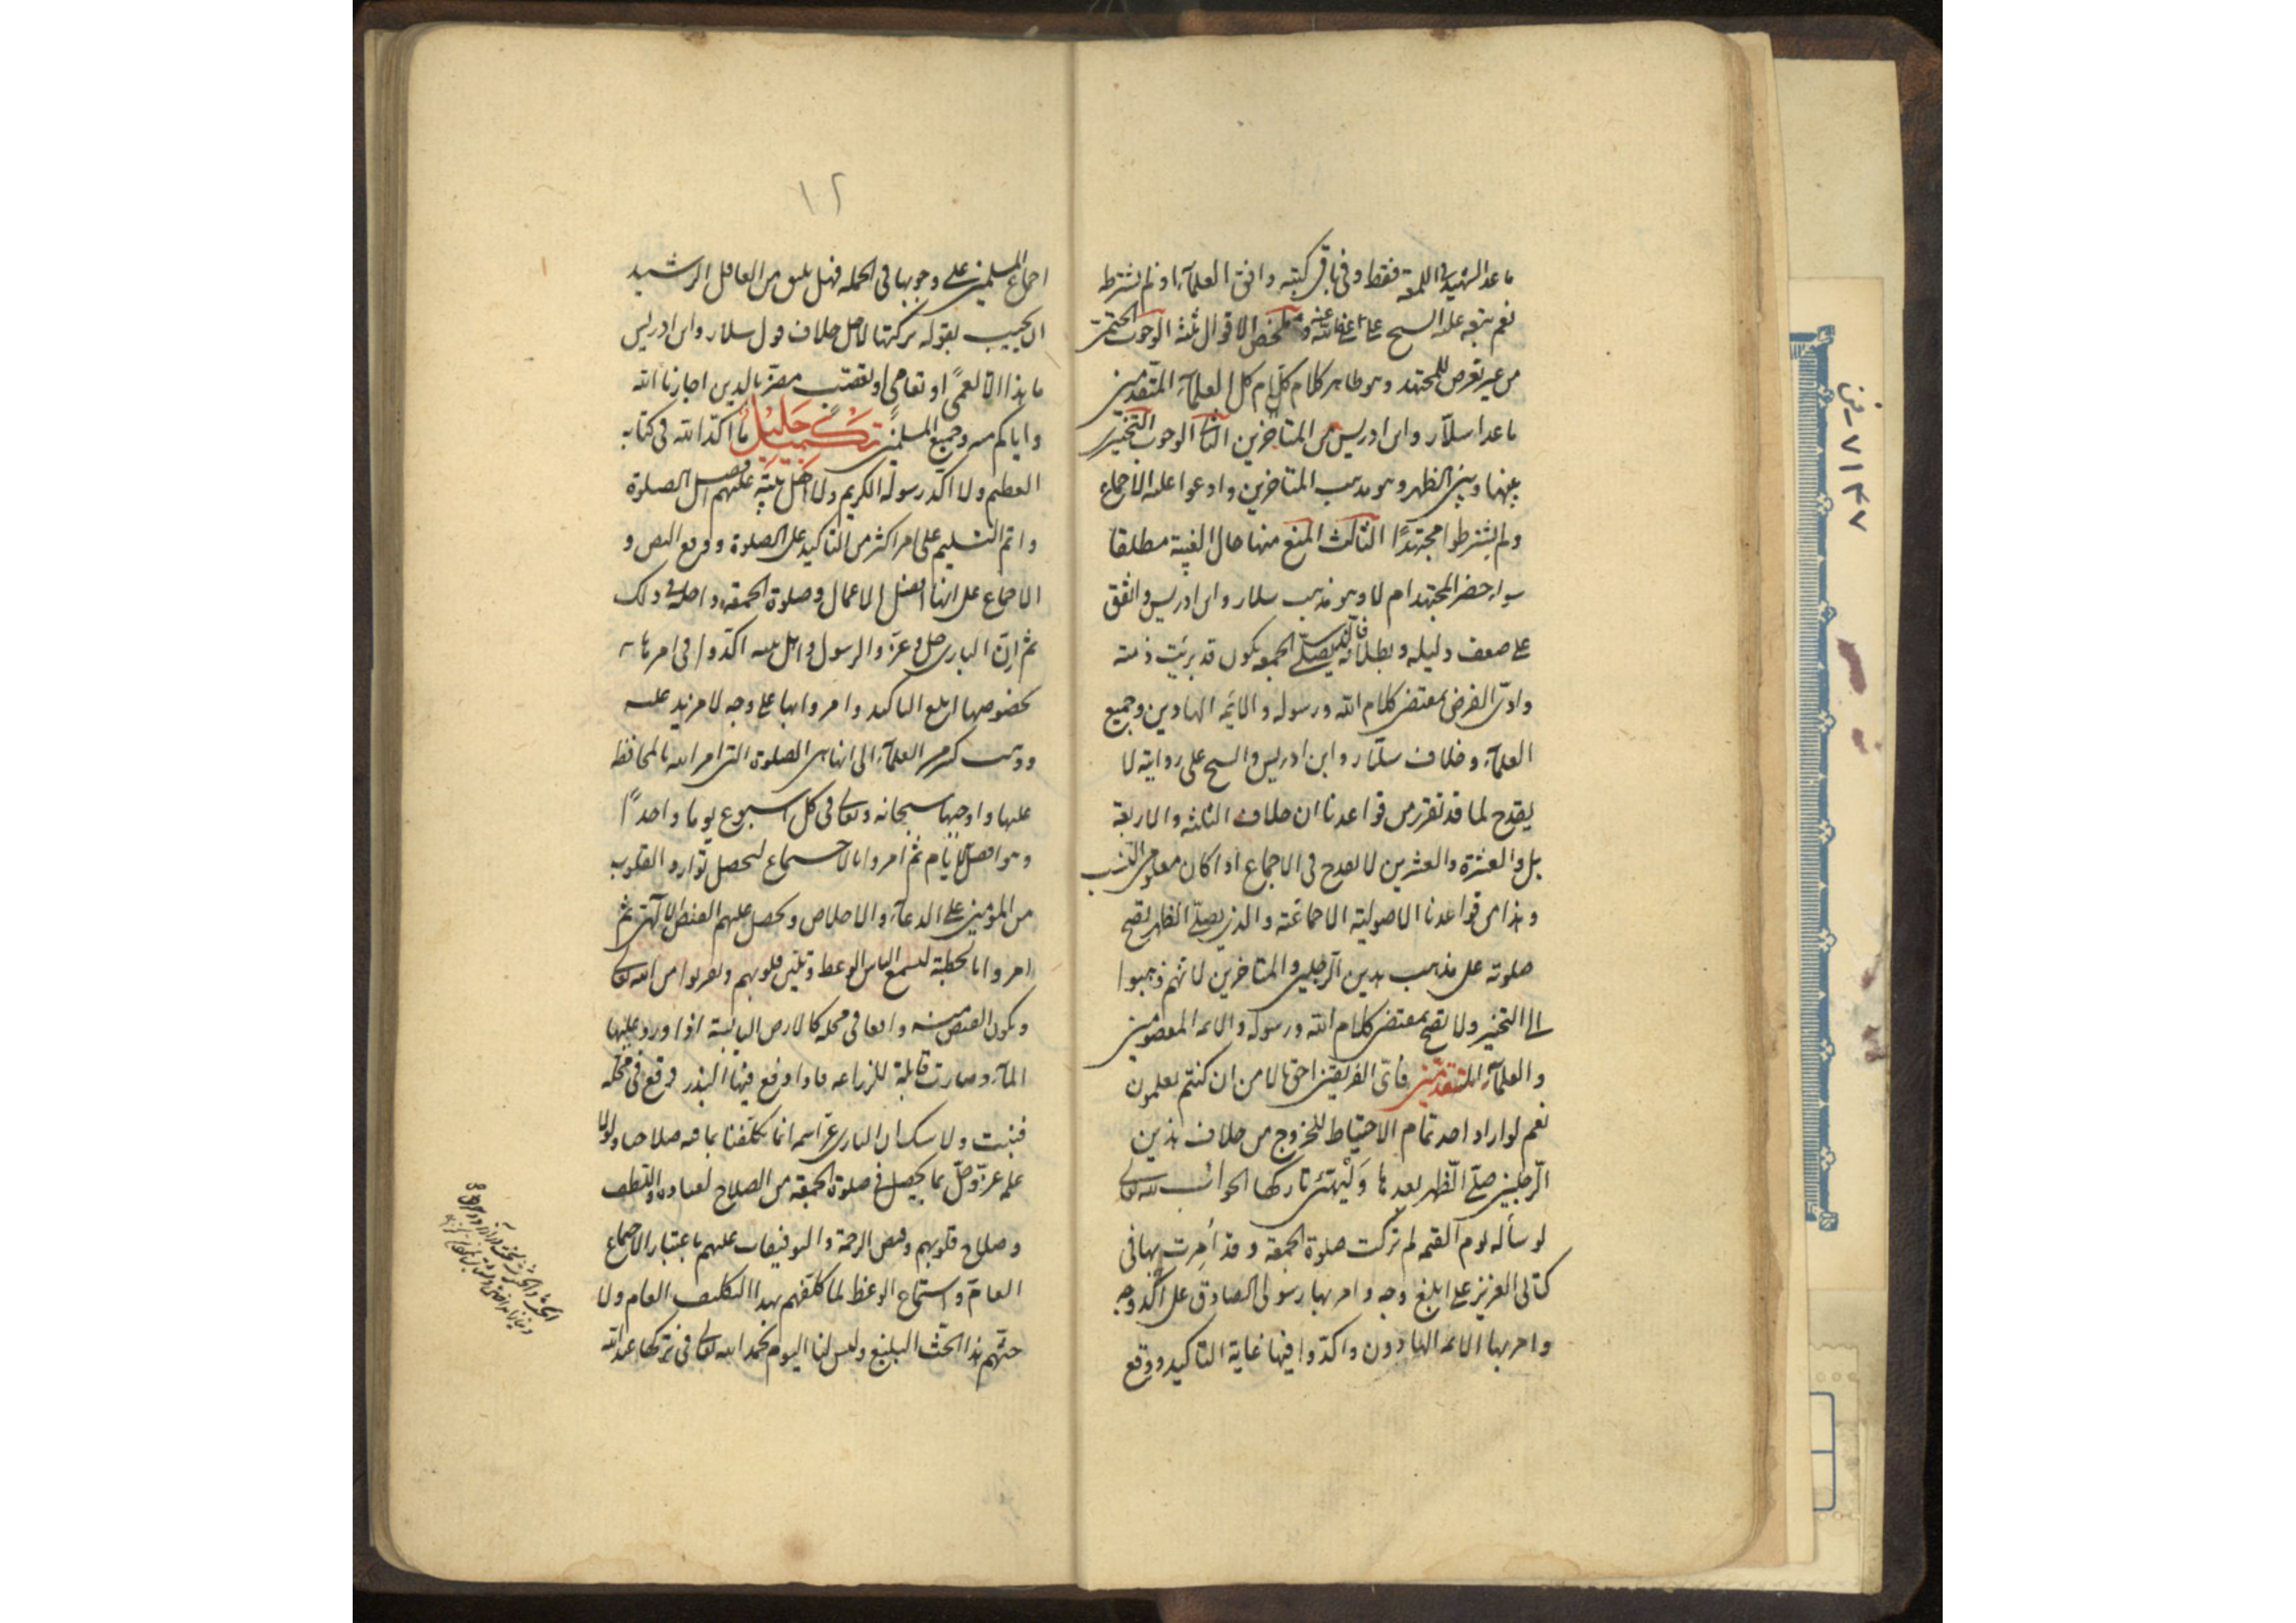 ما عدا الشهيد في اللمعة فقط وفي باقي كتبه وافق العلمآء ولم يشترطه
نعم تبعه عليه الشيخ علي عفا الله عنه وملخص الاقوال ثلثة الوجوب الحتمي
من غير تعرض للمجتهد وهو ظاهر كلام كل العلمآء المتقدمين
ما عدا سلار وابن ادريس من المتاخرين الثاني الوجوب التخييري
بينها وبين الظهر وهو مذهب المتاخرين وادعوا عليه الاجماع
ولم يشترطوا مجتهدًا الثالث المنع منها حال الغيبة مطلقا
سواء حضر المجتهد ام لا وهو مذهب سلار وابن ادريس واتفق
على ضعف دليله وبطلانه فالذي يصلي الجمعة يكون قد برئت ذمته
وادى الفرض بمقتضى كلام الله ورسوله والائمة الهادين وجميع
العلمآء وخلاف سلّار وابن ادريس والشيخ علي رواية لا
يقدح لما قد تقرر من قواعدنا ان خلاف الثلثة والاربعة
بل والعشرة والعشرين لا يقدح في الاجماع اذا كان معلومي النسب
وهذا من قواعدنا الاصولية الاجماعية والذي يصلي الظهر تصح
صلوته على مذهب هذين الرجلين والمتاخرين لانهم ذهبوا
الى التخيير ولا تصح بمقتضى كلام الله ورسوله والائمة المعصومين
والعلمآء المتقدمين فاىّ الفريقين احق بالامن ان كنتم تعلمون
نعم لو اراد احد تمام الاحتياط للخروج من خلاف هذين
الرجلين صلّى الظهر بعدها وليهيّئ تاركها الجواب لله تعالى
لو سأله يوم القيمة لم تركت صلوة الجمعة وقد أمرت بها في
كتابي العزيز على ابلغ وجه وامر بها رسولي الصادق على آكد وجه
وامر بها الائمة الهادون واكدوا فيها غاية التاكيد ووقع
١٢
اجماع المسلمين على وجوبها في الجملة فهل يليق من العاقل الرشيد
ان يجيب بقوله تركتها لاجل خلاف قول سلار وابن ادريس
ما هذا الا لعمًى او تعامي او تعصب مضرّ بالدين اجارنا الله
واياكم منه وجميع المسلمين تكميلٌ جليلٌ ما اكّد الله في كتابه
العظيم ولا اكّد رسوله الكريم ولا اهل بيته عليهم افضل الصلوة
واتم التسليم على امر اكثر من التاكيد على الصلوة ووقع النص و
الاجماع على انها افضل الاعمال وصلوة الجمعة داخلة في ذلك
ثم انّ الباري جل وعزّ والرسول واهل بيته اكّدوا في امرها
بخصوصها ابلغ التاكيد وامروا بها على وجه لا مزيد عليه
وذهب كثير من العلمآء الى انها هي الصلوة التي امر الله بالمحافظة
عليها واوجبها سبحانه وتعالى في كل اسبوع يوما واحدًا
وهو افضل الايام ثم امروا بالاجتماع ليحصل توارد القلوب
من المؤمنين على الدعآء والاخلاص ويحصل عليهم الفيض الالهي ثم
امروا بالخطبة ليسمع الناس الوعظ وتلين قلوبهم ويقربوا من الله تعالى
ويكون الفيض منه واقعا في محله كالارض اليابسة اذا ورد عليها
المآء وصارت قابلة للزراعة فاذا وقع فيها البذر وقع في محلّه
فينبت ولا شك ان الباري عزّ اسمه انما يكلّفنا بما فيه صلاحنا ولولا
علمه عزّ وجلّ بما يحصل في صلوة الجمعة من الصلاح لعباده واللطف
وصلاح قلوبهم وفيض الرحمة والتوفيقات عليهم باعتبار الاجتماع
العام واستماع الوعظ لما كلّفهم بهذا التكليف العام ولا
حثّهم هذا الحث البليغ وليس لنا اليوم بحمد الله تعالى في تركها عند الله